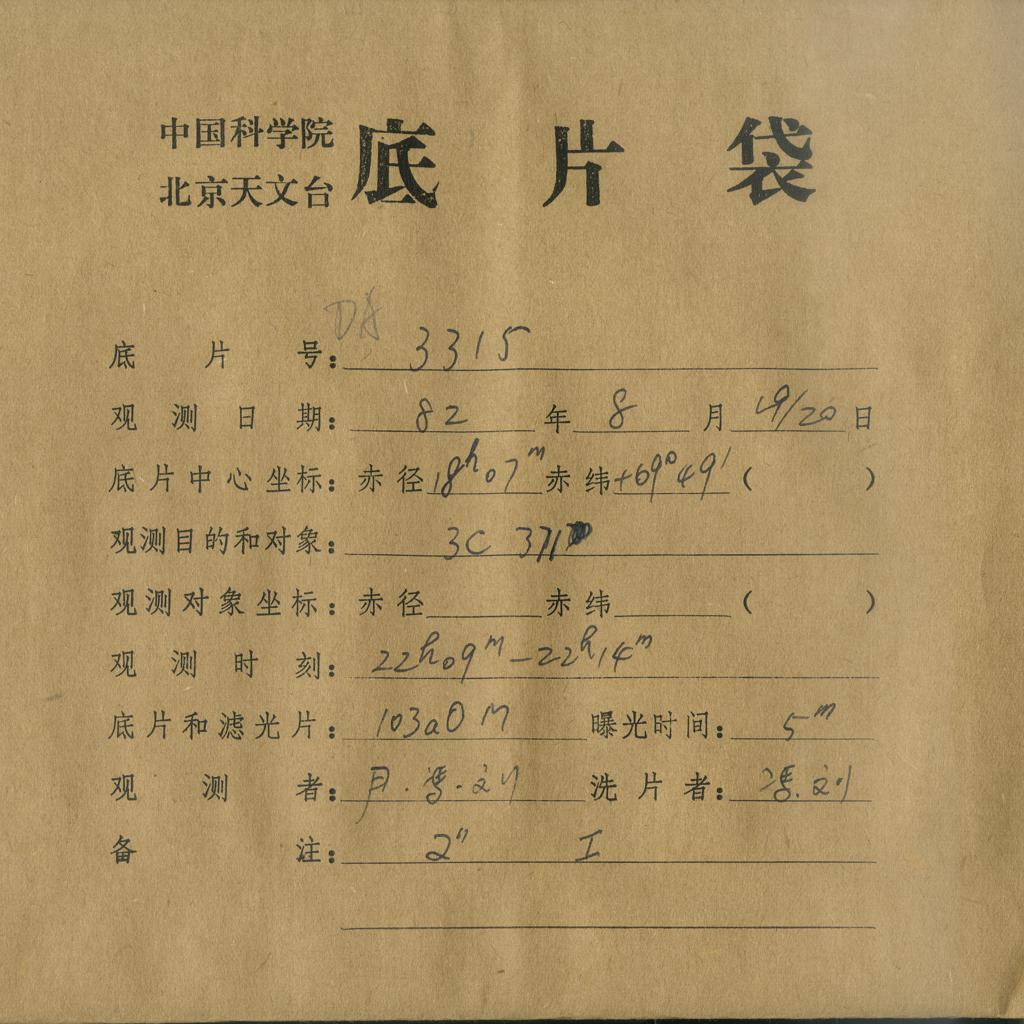 中国科学院
北京天文台
底片袋
DA
底片号: 3315
观测日期: 82年8月19/20日
底片中心坐标: 赤径18h07m赤纬+69°49′( )
观测目的和对象: 3C 371
观测对象坐标: 赤径 赤纬 ( )
观测时刻: 22h09m-22h14m
底片和滤光片: 103aO M 曝光时间: 5m
观测者: 尹.冯.刘 洗片者: 冯.刘
备注: 2″ I